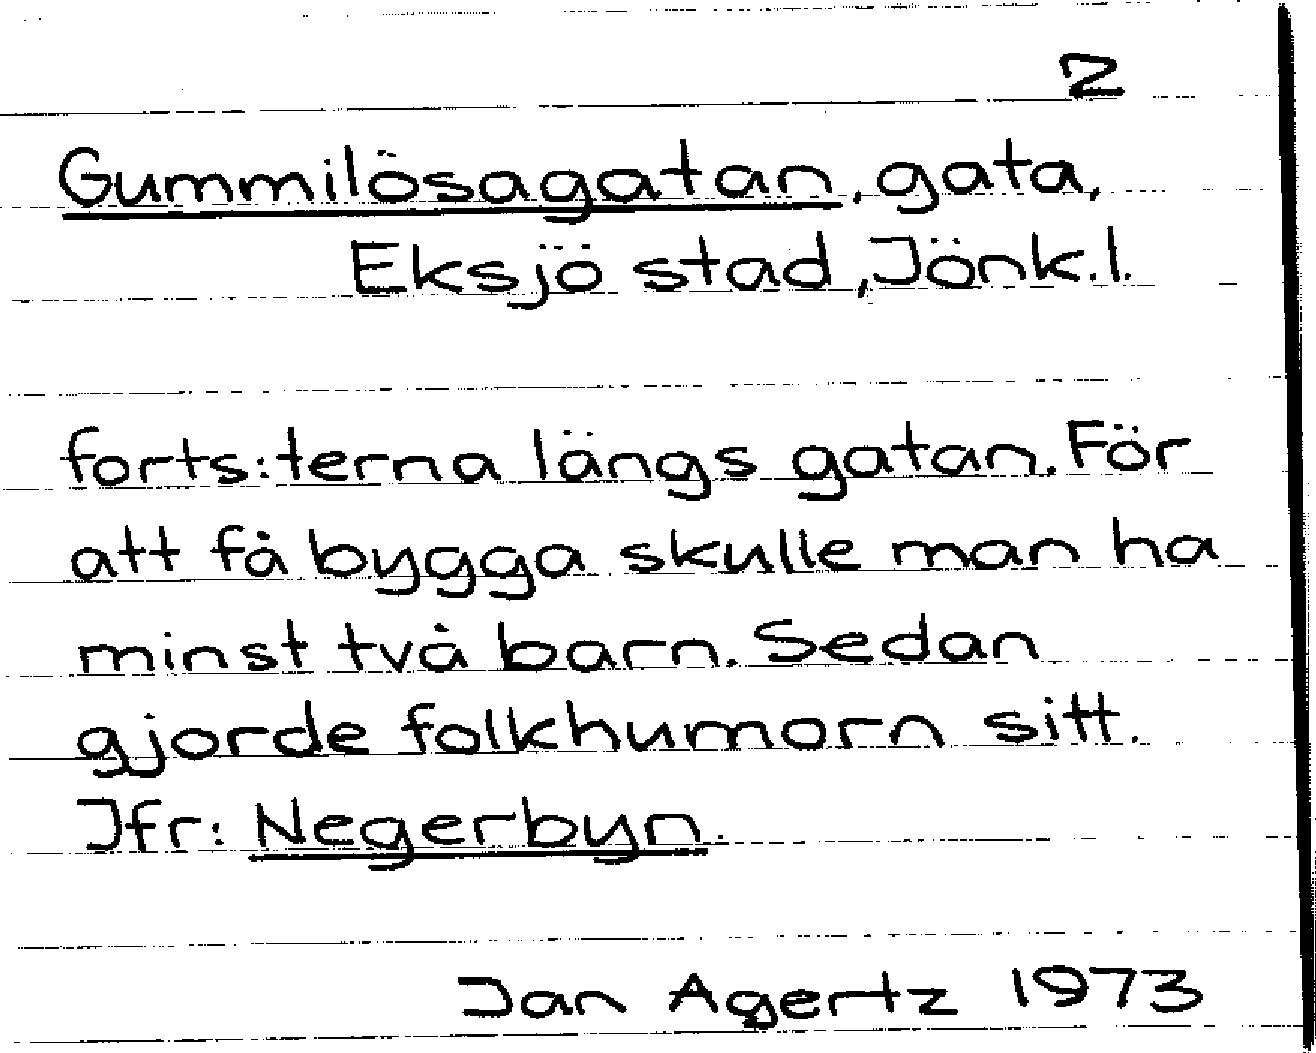 2
Gummilösagatan, gata,
Eksjö stad, Jönk.l.
forts:terna längs gatan. För
att få bygga skulle man ha
minst två barn. Sedan
gjorde folkhumorn sitt.
Jfr: Negerbyn.
Jan Agertz 1973